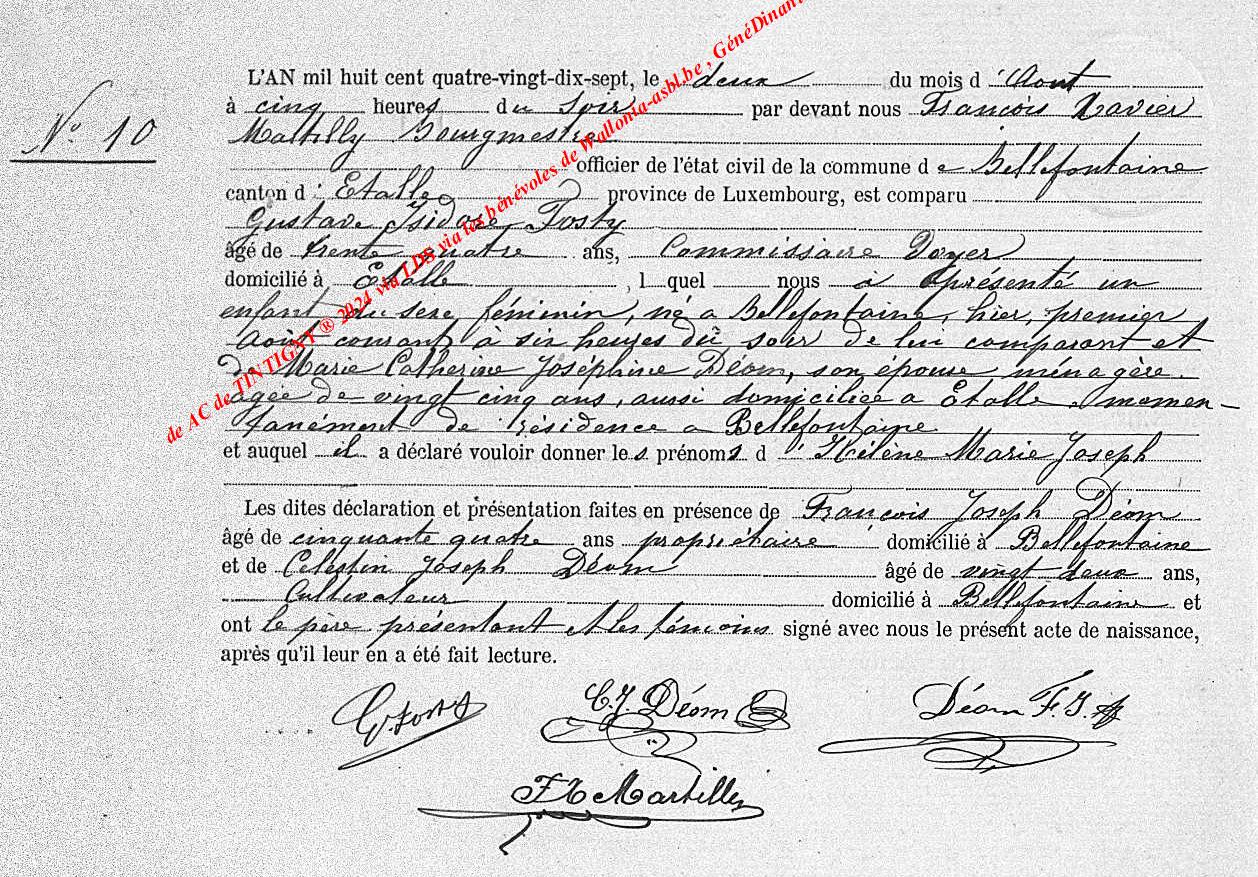 N° 10
L'AN mil huit cent quatre-vingt-dix-sept, le deux du mois d'Aout
à cinq heures du soir par devant nous François Xavier
Martilly Bourgmestre
officier de l'état civil de la commune de Bellefontaine
canton d'Etalle province de Luxembourg, est comparu
Gustave Isidore Fosty
âgé de trente quatre ans, Commissaire Voyer
domicilié à Etalle, lequel nous a présenté un
enfant du sexe féminin, né a Bellefontaine, hier, premier
Août courant à six heures du soir de lui comparant et
de Marie Catherine Joséphine Déom, son épouse ménagère.
agée de vingt cinq ans, aussi domiciliée a Etalle, momen-
tanément de résidence a Bellefontaine
et auquel il a déclaré vouloir donner les prénoms d'Hélène Marie Joseph
Les dites déclaration et présentation faites en présence de François Joseph Déom
âgé de cinquante quatre ans propriétaire domicilié à Bellefontaine
et de Celestin Joseph Déom âgé de vingt deux ans,
Cultivateur domicilié à Bellefontaine et
ont le père présentant et les témoins signé avec nous le présent acte de naissance,
après qu'il leur en a été fait lecture.
G. Fosty C. J. Déom Déom F. J.
F X Martilly
de AC de TINTIGNY ® 2024 via LDS via les bénévoles de Wallonia-asbl.be, GénéDinant